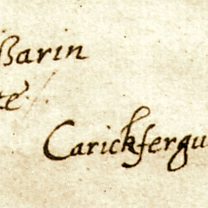 Barin
te
Carickfergu